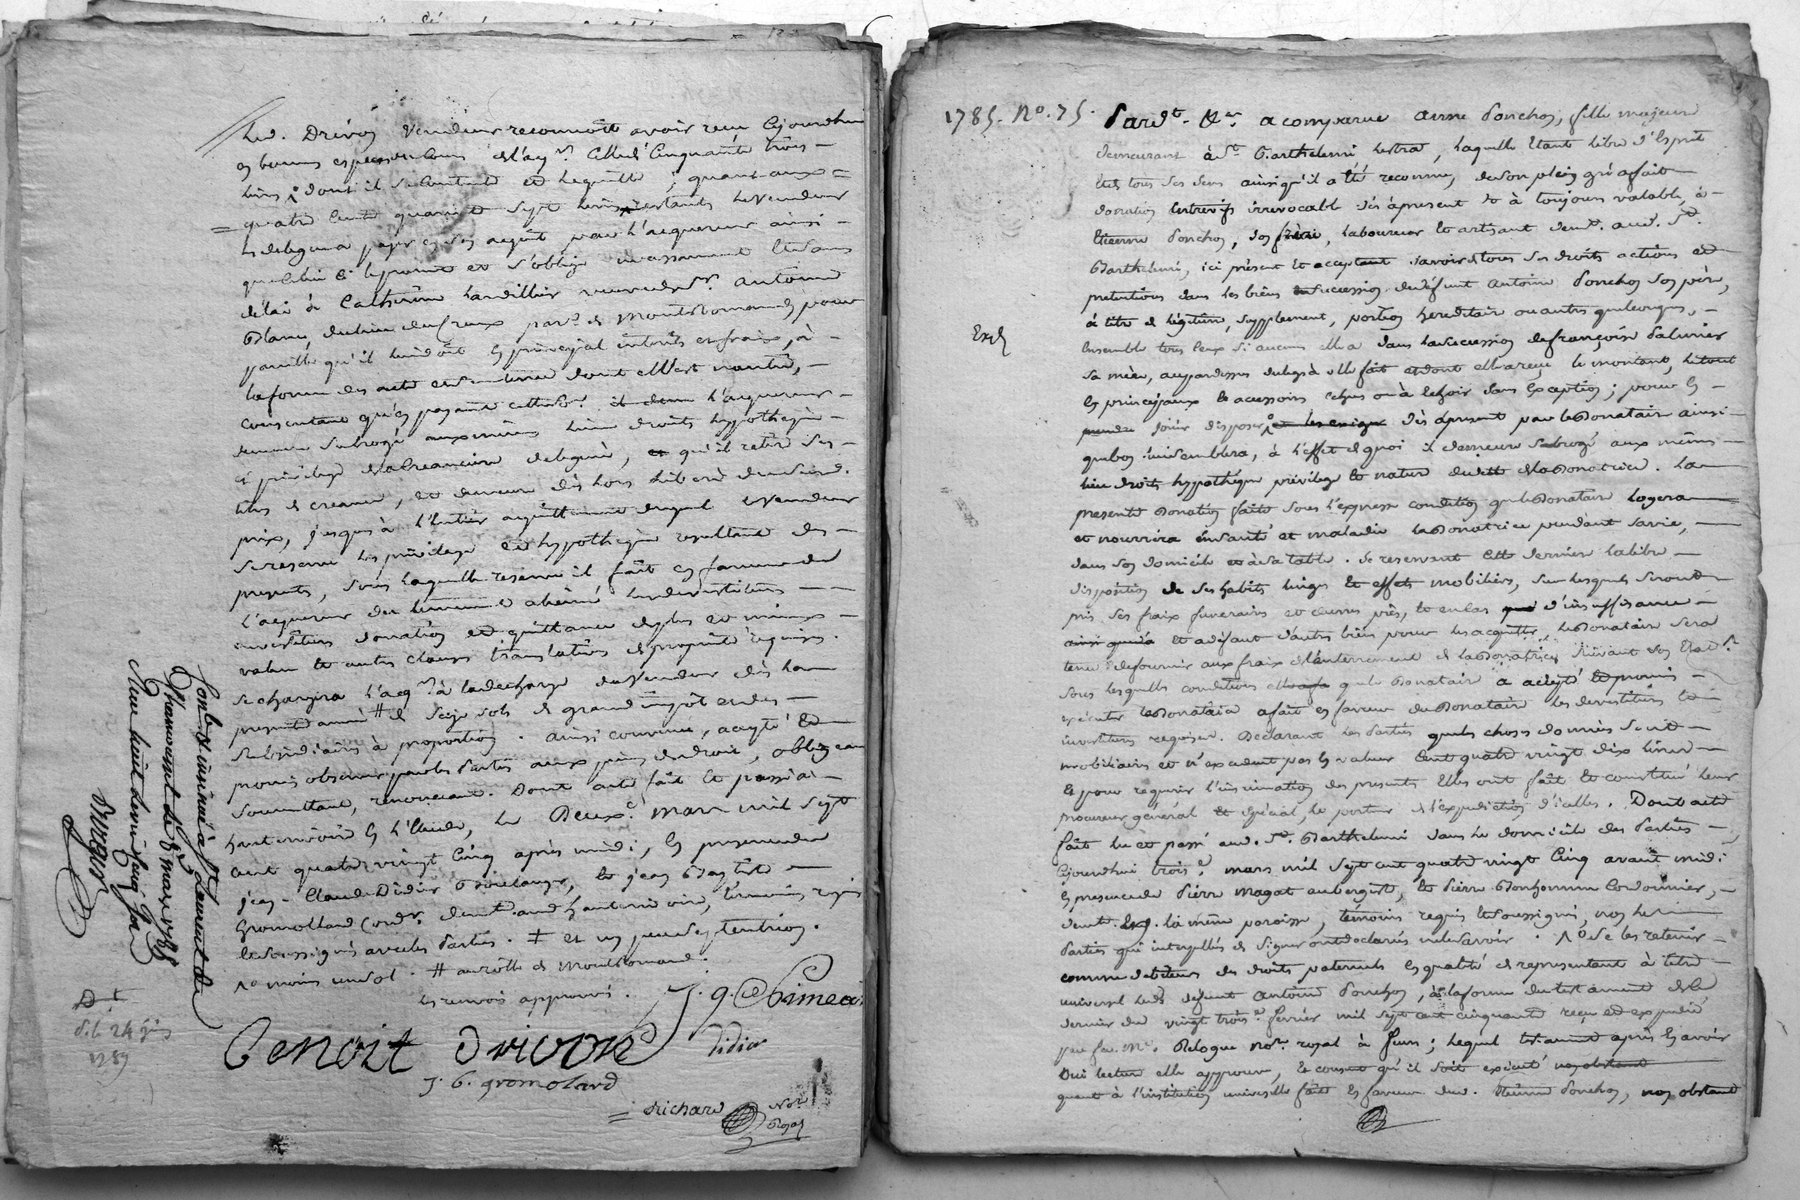 Led. Drivon vendeur reconnoit avoir reçu cejourdhui
en bonnes especes de cours de l'acqr. celle de cinquante trois
livres dont il se contente et le quitte; quant aux
quatre cents quarante sept livres restants le vendeur
en delegue a payer en son acquit par l'acquereur ainsi
que celui ci le promet et s'oblige incessamment et sans
délai à Catherine veuve de sr. antoine
Blanc, du lieu du Creux parr. de Montromand pour
pareille qu'il lui doit en principal intérêts et frais, à
la forme des acte et sentence dont elle est nantie,
consentant qu'en payant cette so. l'acquereur
demeure subrogé aux mêmes lieu droits hypotheque
et privilege de la creanciere deleguée, qu'il retire ses
titres de creance, et demeure dès lors libéré dudit
prix, jusques à l'entier acquittement duquel le vendeur
se reserve les privilege et hypotheque resultant des
presentes, sous laquelle reserve il fait en faveur de
l'acquereur les devestitures
investitures donation et quittance de plus et mieux
value et autres clauses translatives de propriété requises.
Se chargera l'acqr. à la decharge du vendeur dès la
presente année # de seize sols de grand impôt et des
subsidiaires à proportion. ainsi convenu, accepté et
promis observer par les parties aux peines de droit, obligeant
soumettant, renonceant. Dont acte fait et passé à
hauterivoire en l'etude, le Deuxe. mars mil sept
cent quatre vingt cinq après midi, en presence de
jean-Claude Didier Boulanger, et jean Baptiste
Gromollard Cordr. demt. aud. hauterivoire, témoins requis
et soussignés avec les parties. # et un peu septentrion.
1o moins un sol. # au rolle de Montromand.
les renvois approuvés.
J. g.
Benoit Drivon
didier
J. b. gromolard
Richard Nore.
Royal
Controllé et insinué à St. Laurent de
Chamousset le 8 mars 1785
Reçu huit livres
D. t.
d. l. 24 juin
1789
1785. No. 75.
Pardt. &a. a comparue anne Ponchon, fille majeure
demeurant à St. Barthelemi lestra, laquelle étant libre d'esprit
et de tous ses sens ainsi qu'il a été reconnu, de son plein gré a fait
donation entre vifs irrevocable dès à present et à toujours valable, à
Etienne Ponchon, son frère, laboureur et artisant demt. aud. St.
Barthelemi, ici présent et acceptant savoir de tous ses droits actions et
pretentions dans les biens et succession de defunt antoine Ponchon son père,
à titre de légitime, supplement, portion hereditaire ou autres quelconques,
ensemble tous ceux si aucuns elle a dans la succession de françoise Palmier
sa mère, au pardessus du legs à elle fait et dont elle a reçu le montant, le tout
en principaux et accessoirs echus ou à echoir sans exception; pour en
jouir disposer dès à present par le Donataire ainsi
que bon lui semblera, à l'effet de quoi il demeure subrogé aux mêmes
lieu droits hypothéque privilege et nature de dette de la Donatrice. La
presente Donation faite sous l'expresse condition que le Donataire logera
et nourrira en santé et maladie la Donatrice pendant sa vie,
dans son domicile et à sa table. Se reservant cette derniere la libre
disposition de ses habits linges et effets mobiliers, sur lesquels seront
pris ses fraix funeraires et œuvres pies, et en cas d'insuffisance
et à défaut d'autres biens pour les acquitter, le Donataire sera
tenu de fournir aux fraix de l'enterrement de la Donatrice suivant son Etat.
Sous lesquelles conditions que le Donataire a accepté et promis
executer la Donatrice a fait en faveur du Donataire les devestitures et
investitures requises. Declarant les Parties que les choses données sont
mobiliaires et n'excedent pas en valeur cent quatre vingt dix livres
Et pour requerir l'insinuation des presentes elles ont fait et constitué leur
procureur général et spécial, le porteur de l'expedition d'icelles. Dont acte
fait lu et passé aud. St. Barthelemi dans le domicile des Parties
cejourdhui troise. mars mil sept cent quatre vingt cinq avant midi
en presence de Pierre Magat aubergiste, et Pierre Bonhomme Cordonnier,
demt. la même paroisse, témoins requis et soussignés, non les
Parties qui interpellées de signer ont declaré ne le savoir. 1o de les retenir
comme debiteur des droits paternels en qualité de representant à titre
universel led. defunt antoine Ponchon, à la forme du testament de ce
dernier du vingt troise. fevrier mil sept cent cinquante reçu et expedié
par feu Me. Pelogue nore. royal à feurs; lequel testament après en avoir
oui lecture elle approuve, et consent qu'il soit exécuté
quant à l'institution universelle faite en faveur dud. Etienne Ponchon, non obstant
Exp.